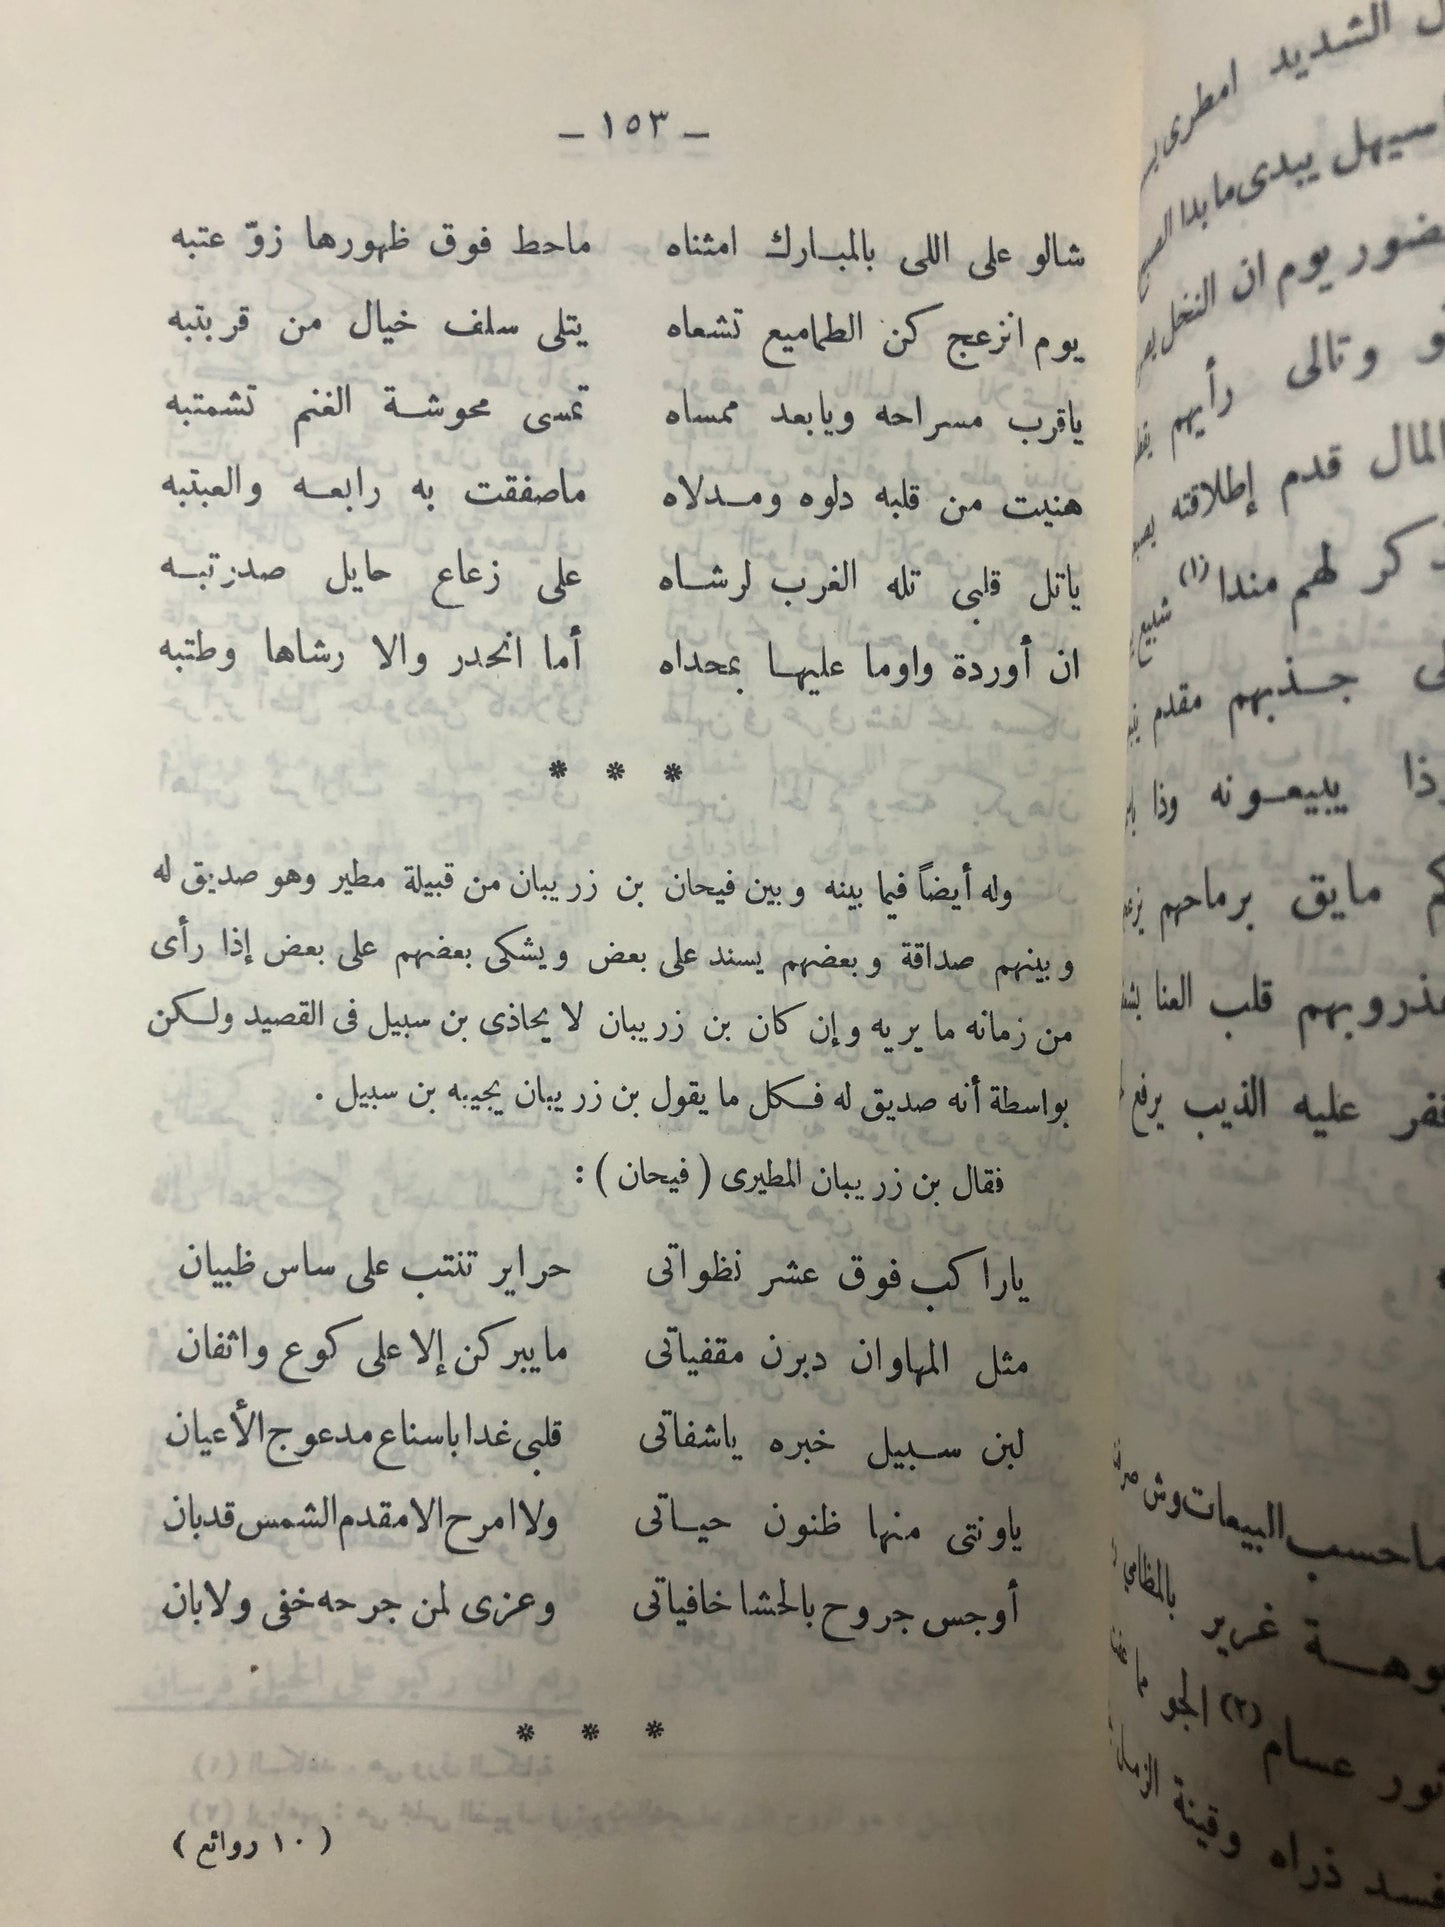 — ١٥٣ —
شالو على اللى بالمبارك امثناه ماحط فوق ظهورها زوّ عتبه
يوم انزعج كن الطماميع تشعاه يتلى سلف خيال من قربتبه
ياقرب مسراحه ويابعد ممساه تمسى محوشة الغنم تشمتبه
هنيت من قلبه دلوه ومدلاه ماصفقت به رابعه والعبتبه
ياتل قلبي تله الغرب لرشاه على زعاع حايل صدرتبه
ان أوردة واوما عليها بمحداه أما انحدر والا رشاها وطتبه
* * *
وله أيضاً فيما بينه وبين فيحان بن زريبان من قبيلة مطير وهو صديق له
وبينهم صداقة وبعضهم يسند على بعض ويشكى بعضهم على بعض إذا رأى
من زمانه ما يريه وإن كان بن زريبان لا يحاذى بن سبيل فى القصيد ولكن
بواسطة أنه صديق له فكل ما يقول بن زريبان يجيبه بن سبيل .
فقال بن زريبان المطيرى ( فيحان ) :
ياراكب فوق عشر نظواتى حراير تنتب على ساس ظبيان
مثل المهاوان دبرن مقفياتى مايبركن إلا على كوع واثفان
لبن سبيل خبره ياشفاتى قلبى غدا باسناع مدعوج الأعيان
ياونتى منها ظنون حياتى ولا امرح الا مقدم الشمس قدبان
أوجس جروح بالحشا خافياتى وعزى لمن جرحه خفى ولابان
* * *
( ١٠ روائع )
ل الشديد امطرى
سيهل يبدى مابدا
يوم ان النخل
وتالى رأيهم
المال قدم إطلاقته
كر لهم مندا (١) شبيع
جذبهم مقدم
ذا يبيعونه وذا
كم مايق برماحهم
قلب العنا
عليه الذيب يرفع
ماحسب البيعات وش
غرير بالمظامى
ثور عسام (٢) الجو
ذراه وقينة